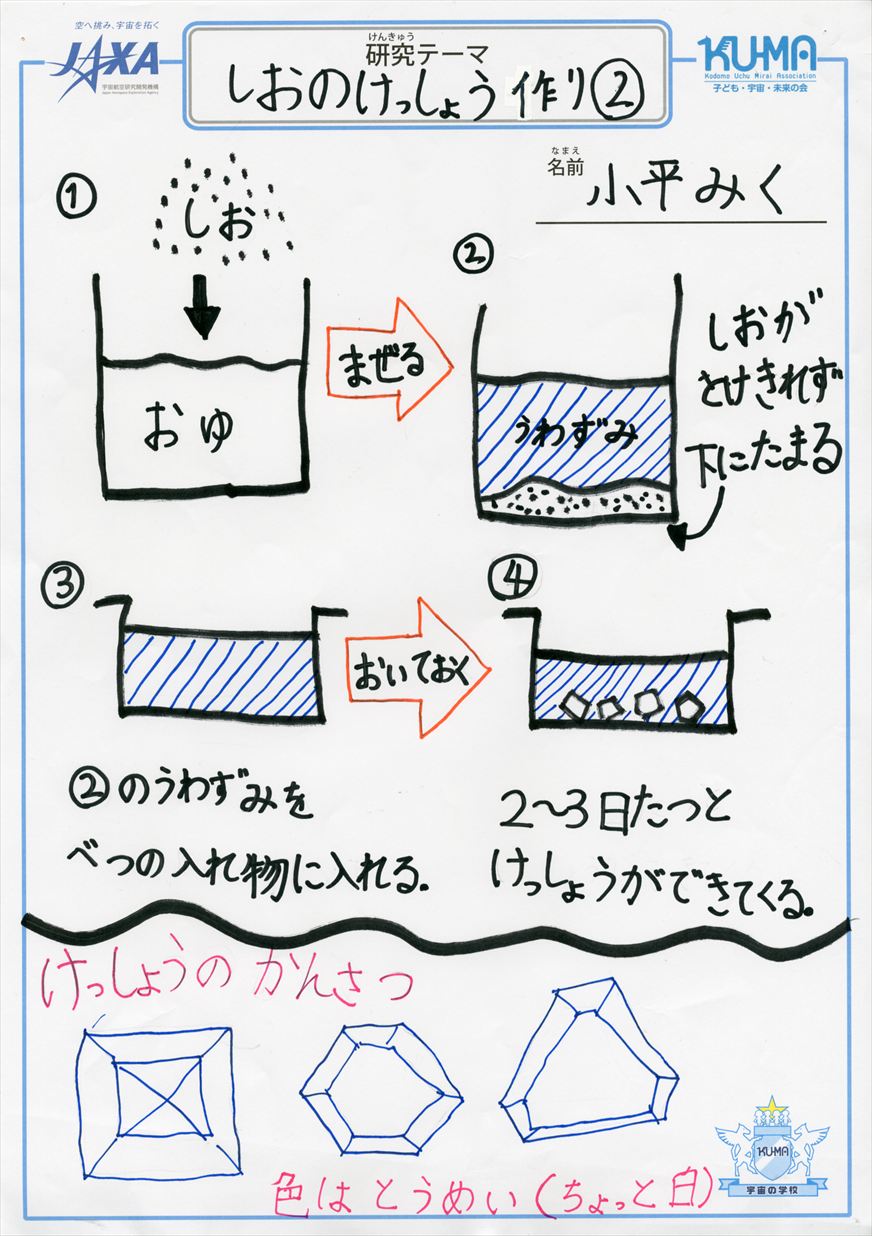 空へ挑み、宇宙を拓く
JAXA
宇宙航空研究開発機構
Japan Aerospace Exploration Agency
けんきゅう
研究テーマ
しおのけっしょう作り②
KU-MA
Kodomo Uchu Mirai Association
子ども・宇宙・未来の会
なまえ
名前
小平みく
①
しお
おゆ
まぜる
②
うわずみ
しおが
とけきれず
下にたまる
③
おいておく
④
②のうわずみを
べつの入れ物に入れる。
2～3日たつと
けっしょうができてくる。
けっしょうのかんさつ
色はとうめい(ちょっと白)
KU-MA
宇宙の学校